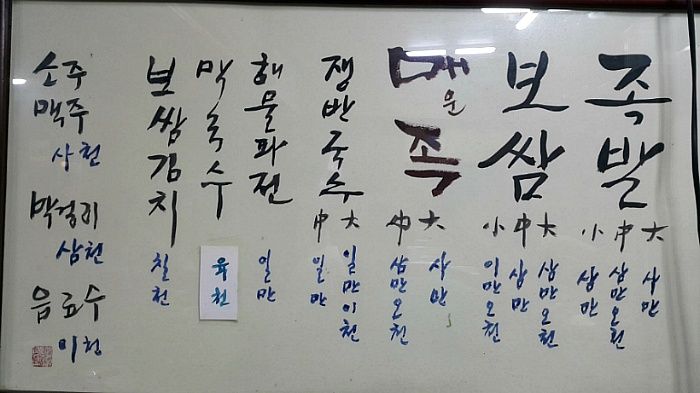 족발
大 中 小
사만
삼만오천
삼만
보쌈
大 中 小
삼만오천
삼만
이만오천
매운족
大 中
사만
삼만오천
쟁반국수
大 中
일만이천
일만
해물파전
일만
막국수
육천
보쌈김치
칠천
소주
맥주
사천
막걸리
삼천
음료수
이천